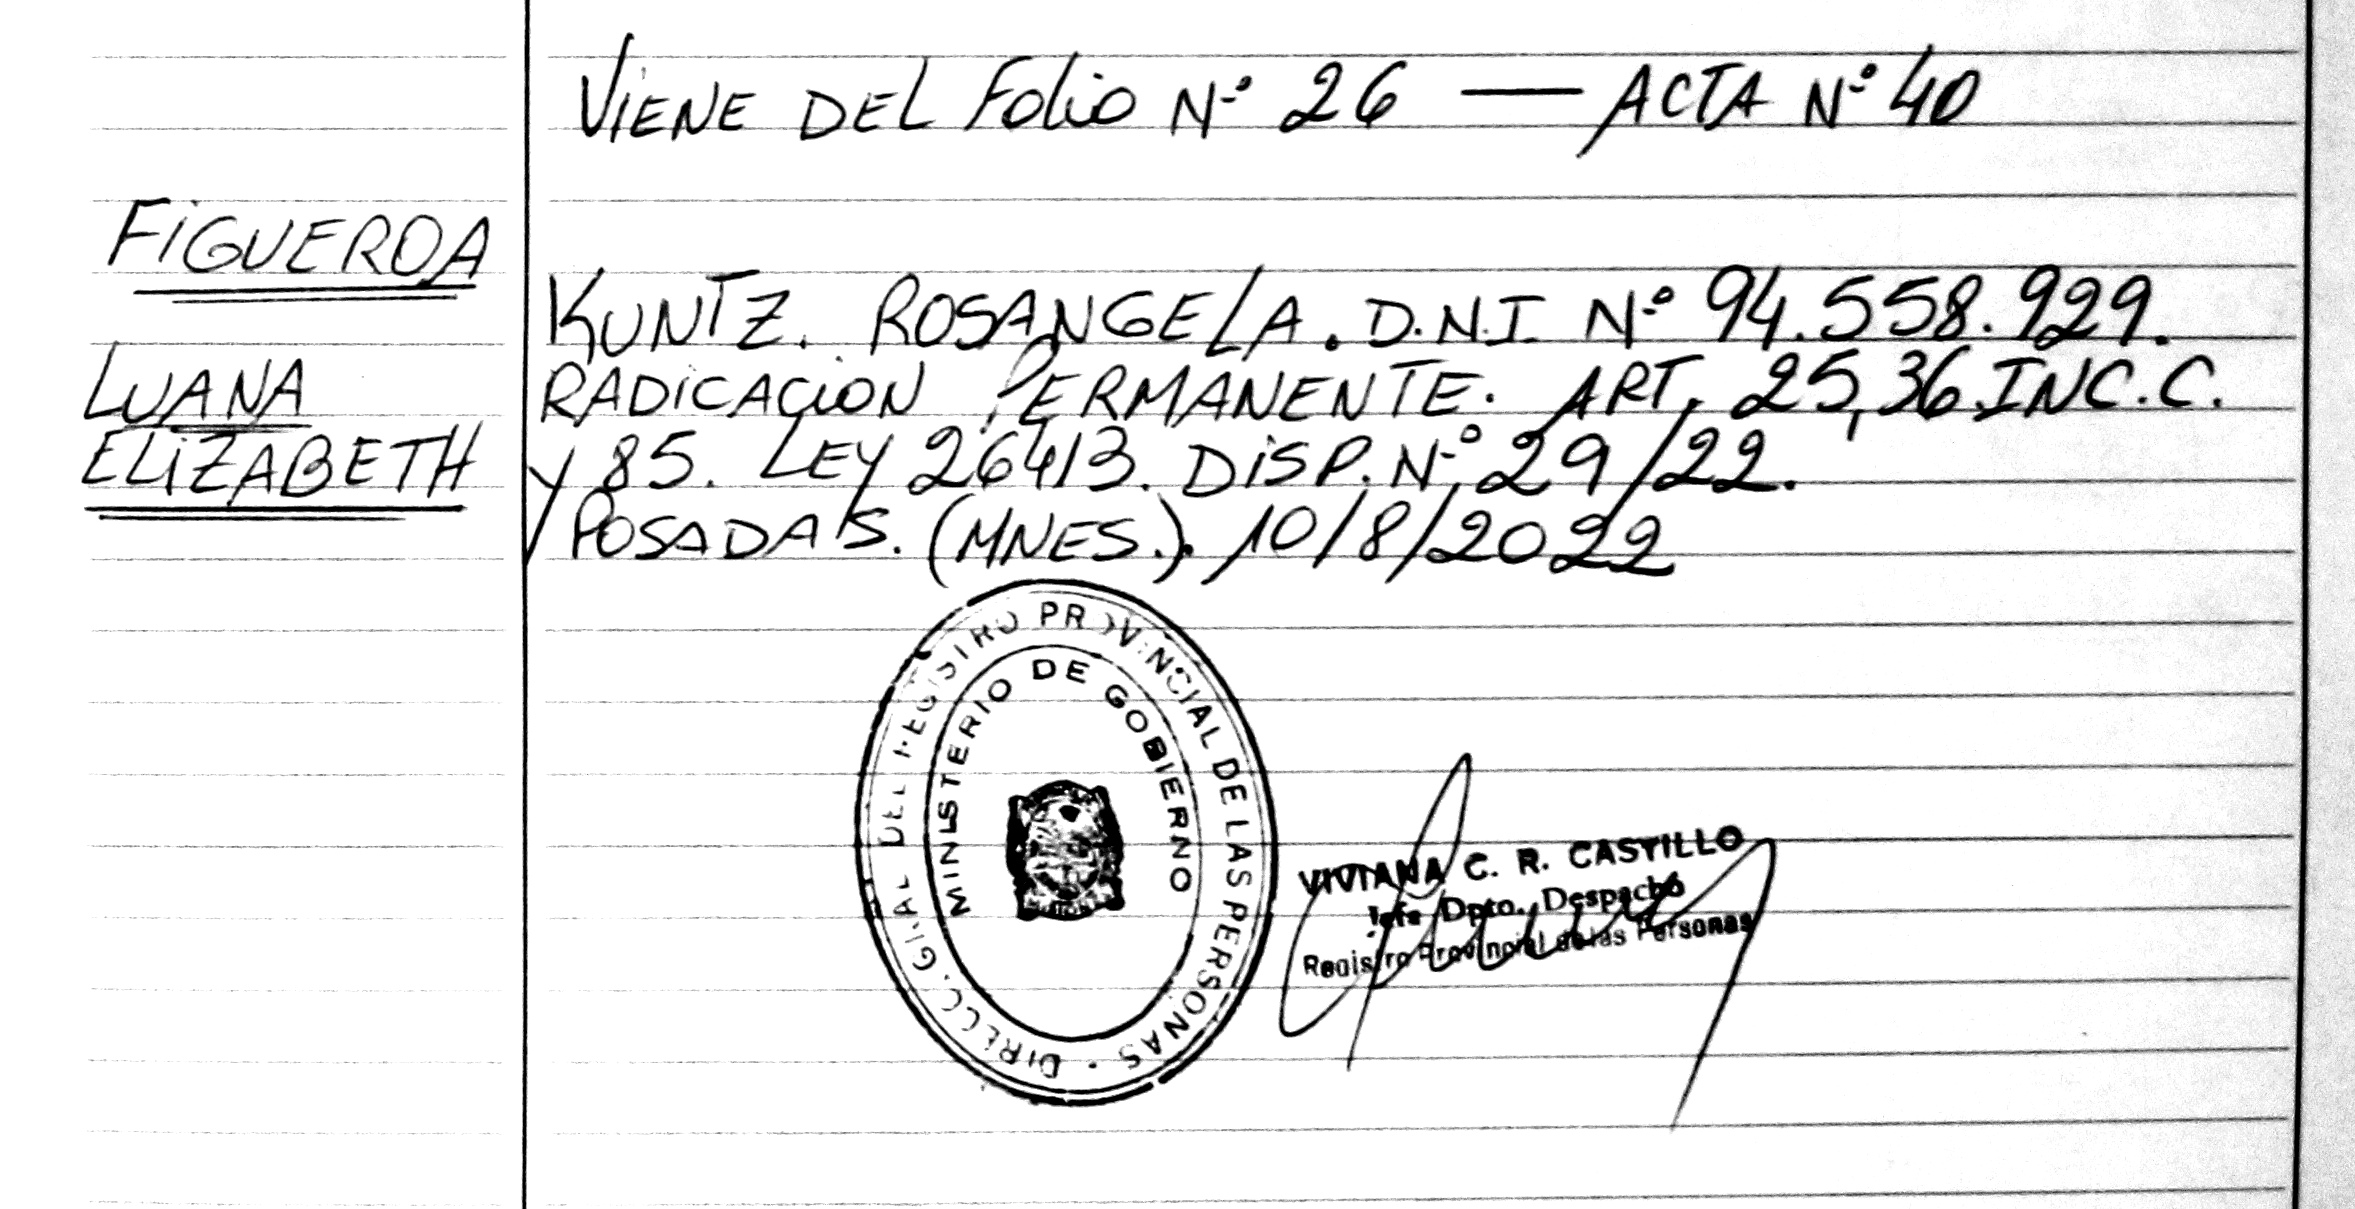 VIENE DEL Folio Nº 26 — ACTA Nº 40
FIGUEROA
LUANA
ELIZABETH
KUNTZ. ROSANGELA. D.N.I. Nº 94.558.929.
RADICACION PERMANENTE. ART. 25, 36. INC. C.
Y 85. LEY 26413. DISP. Nº 29/22.
POSADAS. (MNES.). 10/8/2022
DIRECC. GRAL DEL REGISTRO PROVINCIAL DE LAS PERSONAS
MINISTERIO DE GOBIERNO
VIVIANA C. R. CASTILLO
Jefe Dpto. Despacho
Registro Provincial de las Personas